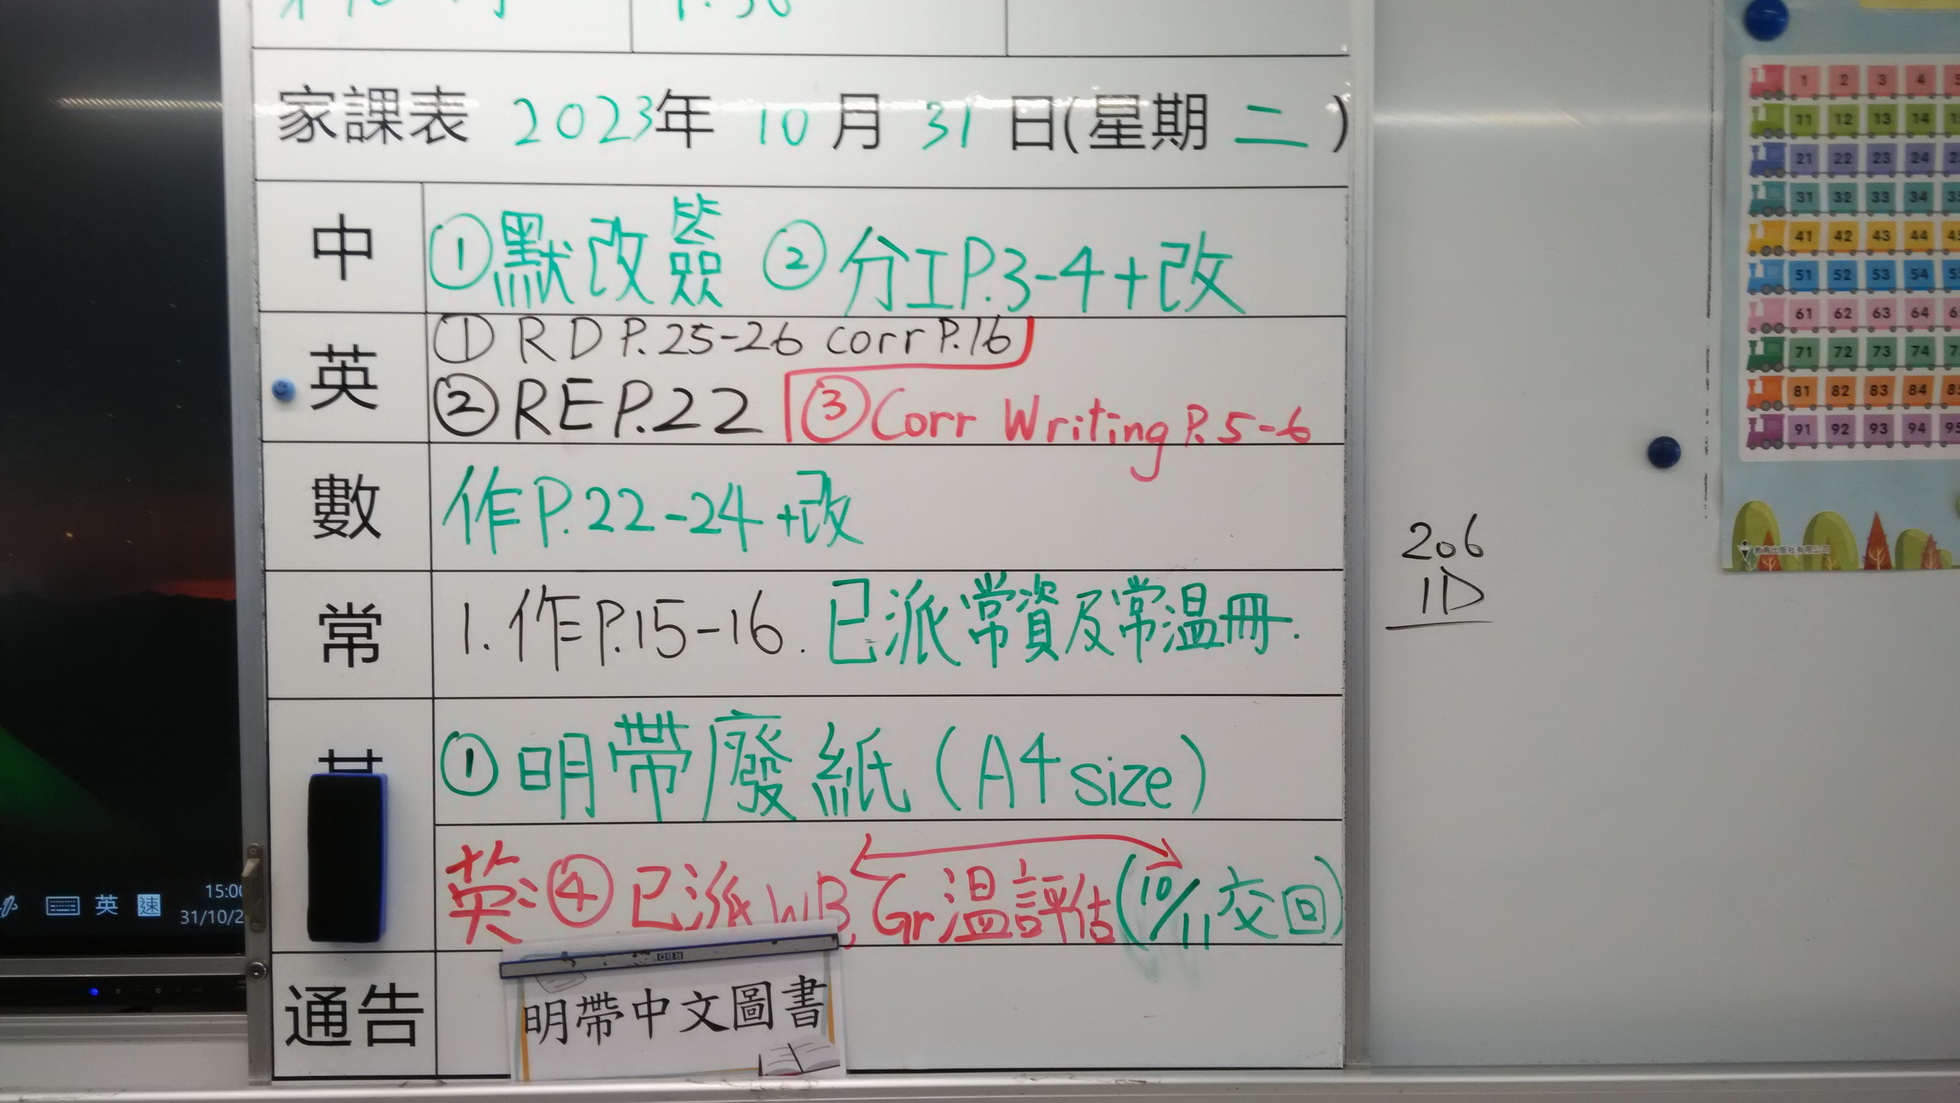 P.30
家課表 2023年 10月 31日(星期 二 )
中 ①默改簽 ②分工P.3-4+改
英 ①RD P.25-26 corr P.16
②RE P.22 ③Corr Writing P.5-6
數 作P.22-24+改
常 1.作P.15-16. 已派常資及常溫冊.
①明帶廢紙(A4 size)
英:④已派WB, Gr溫評估(10/11交回)
通告
明帶中文圖書
206
1D
15:00
31/10/2
英 速
1 2 3 4 5
11 12 13 14
21 22 23 24 2
31 32 33 34 3
41 42 43 44 4
51 52 53 54 5
61 62 63 64 6
71 72 73 74 7
81 82 83 84 8
91 92 93 94 95